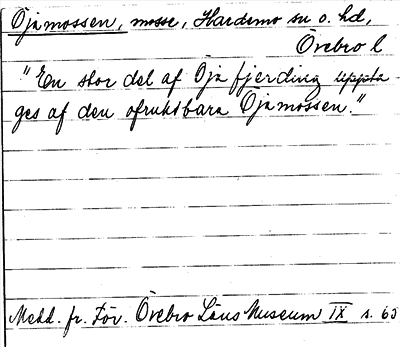 Öjamossen, mosse, Hardemo sn o. hd,
Örebro l
"En stor del af Öja fjerding uppta-
ges af den ofruktbara Öjamossen."
Medd. fr. För. Örebro Läns Museum IX s. 65